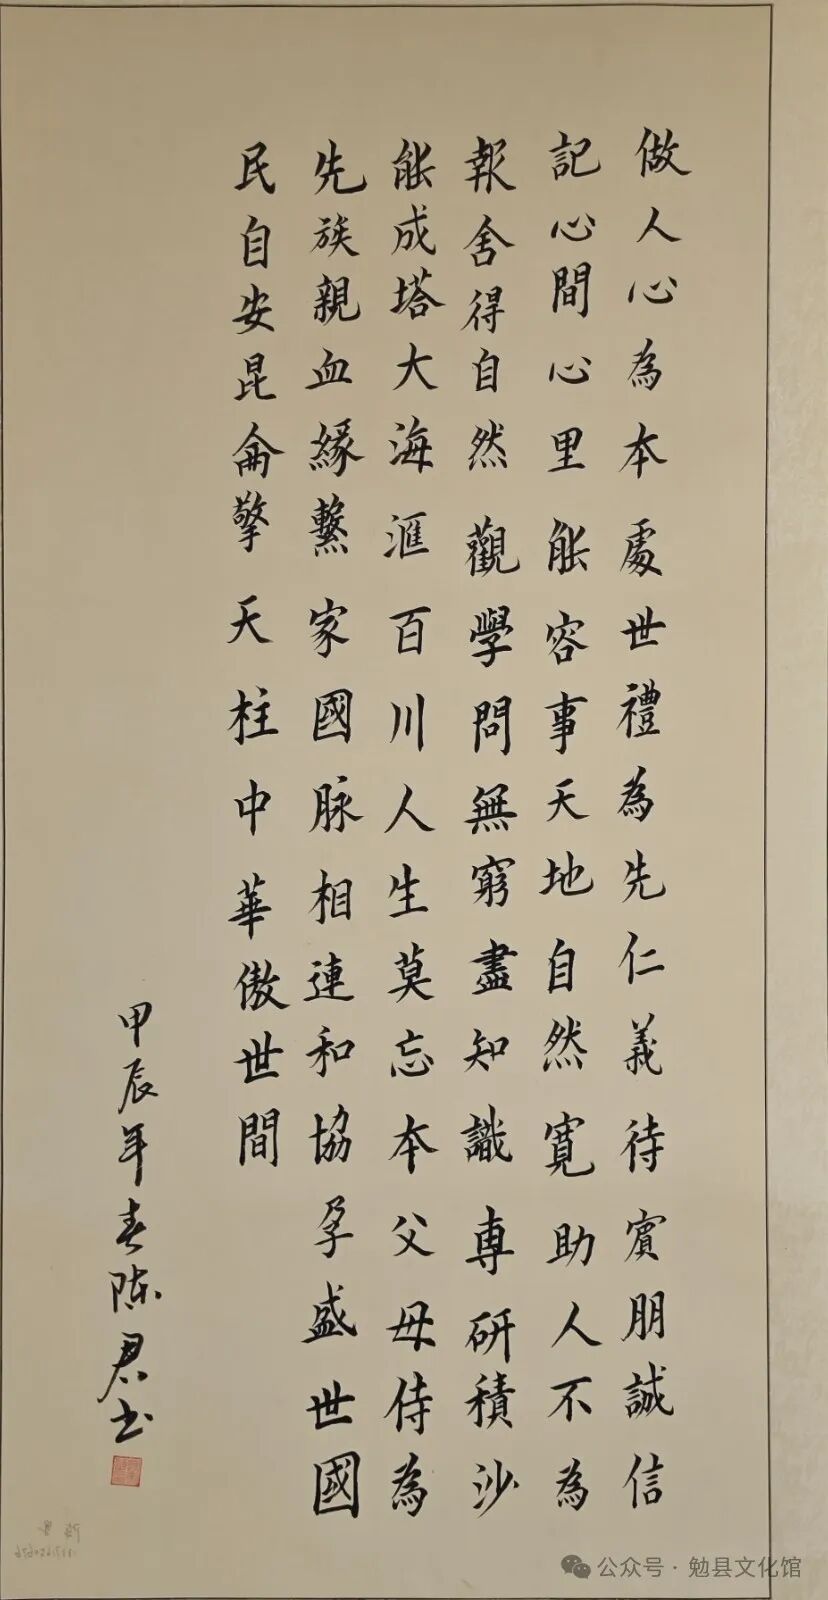 做人心為本處世禮為先仁義待賓朋誠信
記心間心里能容事天地自然寬助人不為
報舍得自然觀學問無窮盡知識專研積沙
能成塔大海滙百川人生莫忘本父母侍為
先族親血緣繫家國脉相連和協孕盛世國
民自安昆侖擎天柱中華傲世間
甲辰年春陈君书
公众号·勉县文化馆